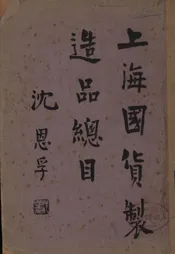 上海國貨製
造品總目
沈恩孚